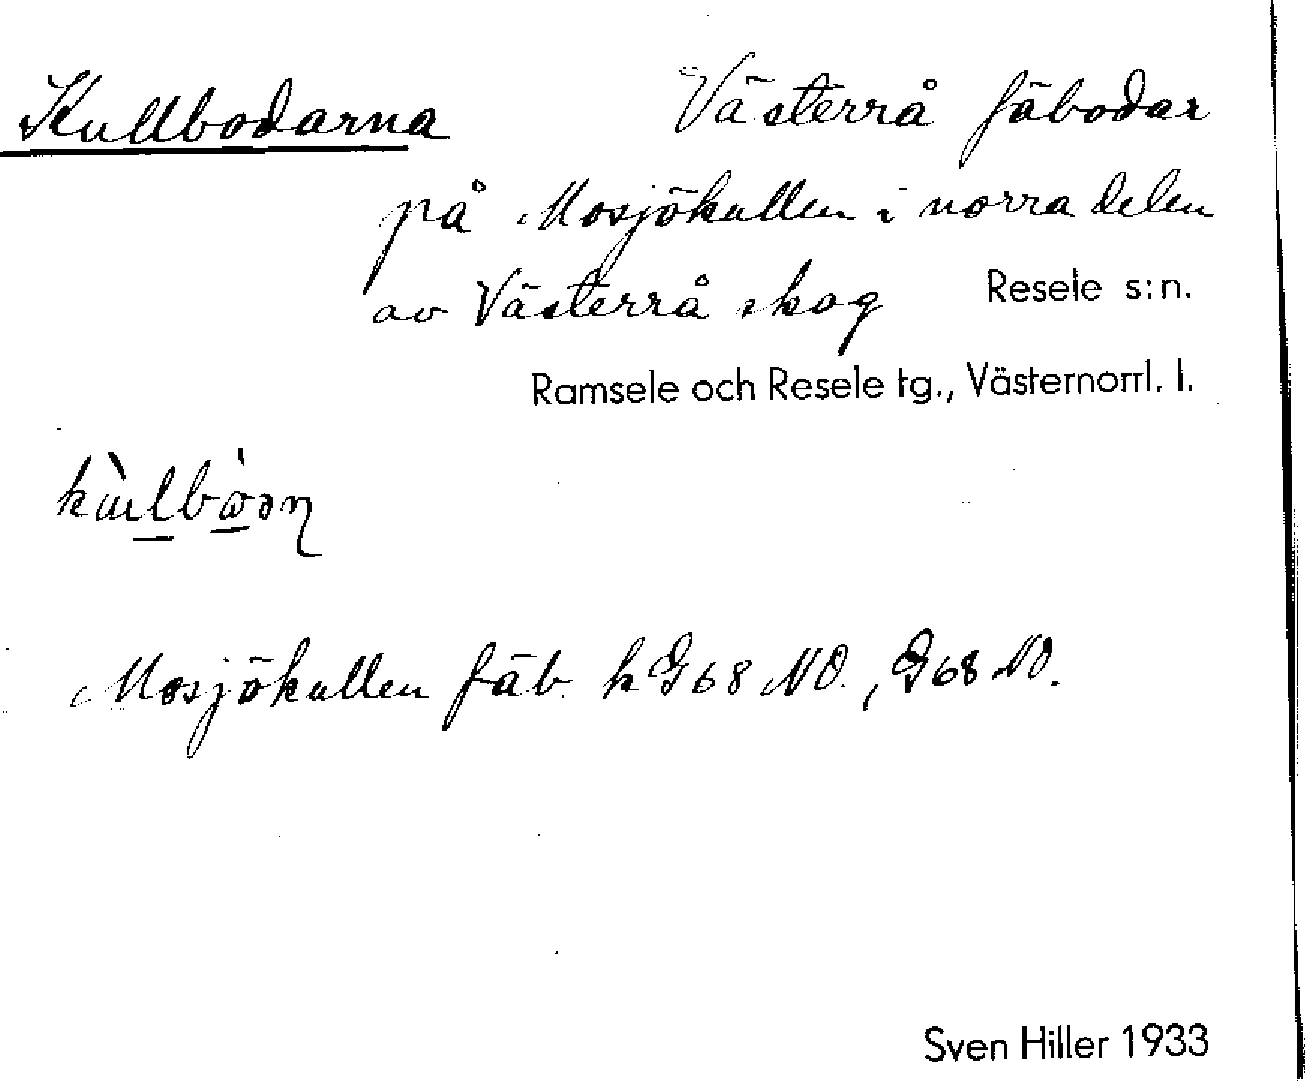 Kullbodarna Västerrå fäbodar
på Mosjökullen i norra delen
av Västerrå skog Resele s:n.
Ramsele och Resele tg., Västernorrl. l.
Mosjökullen fäb. k G68 NO., G68 NO.
Sven Hiller 1933